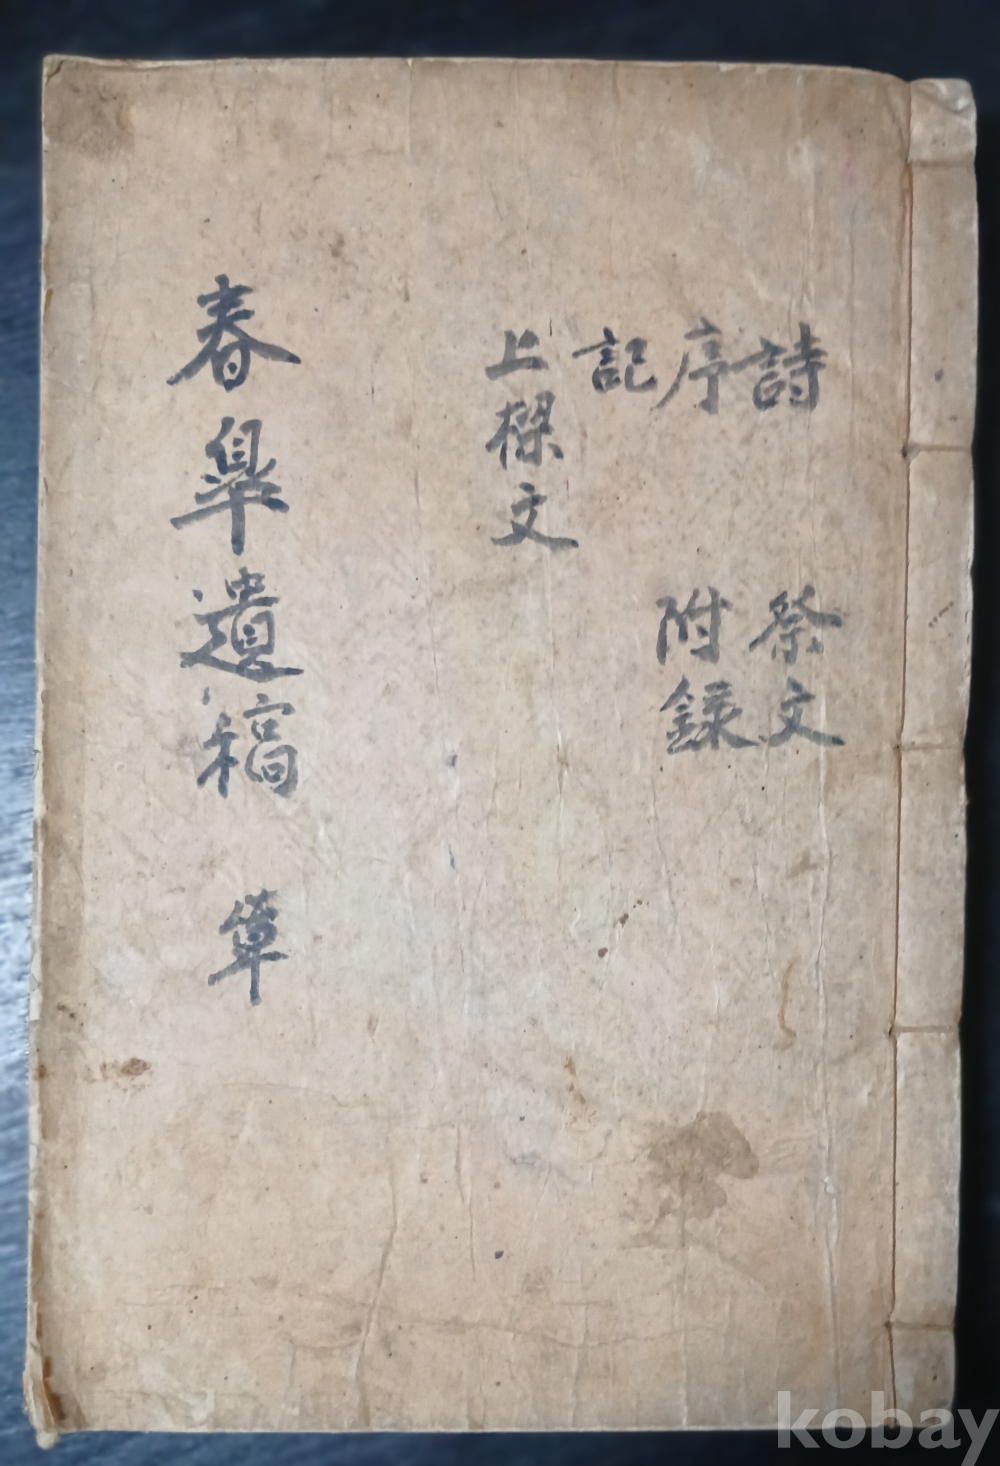 詩
序
記
上樑文
祭文
附錄
春皐遺稿 單
kobay